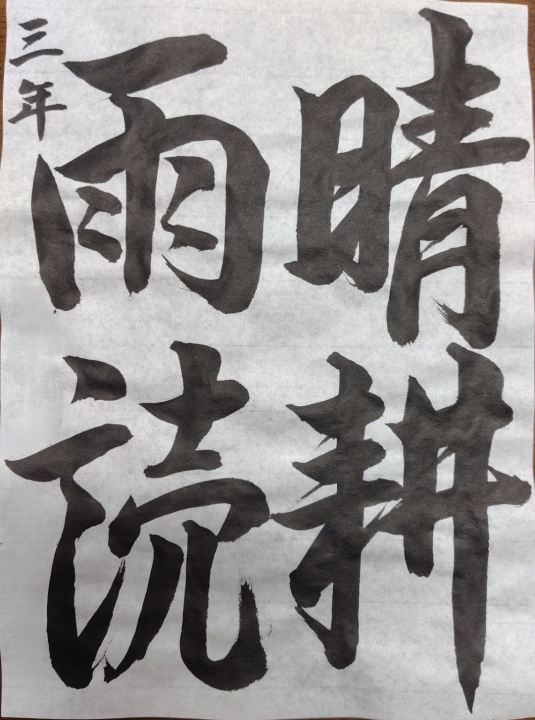 晴耕
雨読
三年